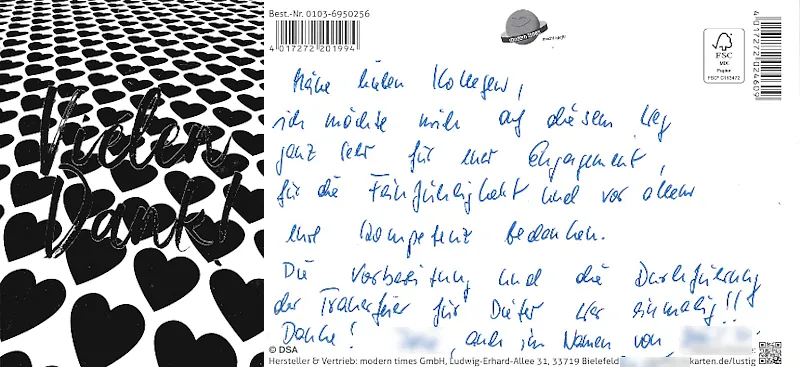 Vielen
Dank!
Best.-Nr. 0103-6950256
4 017272 201994
modern times
4 017272 024609
FSC
MIX
Papier
Meine lieben Kollegen,
ich möchte mich auf diesem Weg
ganz sehr für euer Engagement,
für die Feinfühligkeit und vor allem
eure Kompetenz bedanken.
Die Vorbereitung und die Durchführung
der Trauerfeier für Dieter war einmalig!!!
Danke! auch im Namen von
© DSA
Hersteller & Vertrieb: modern times GmbH, Ludwig-Erhard-Allee 31, 33719 Bielefeld karten.de/lustig